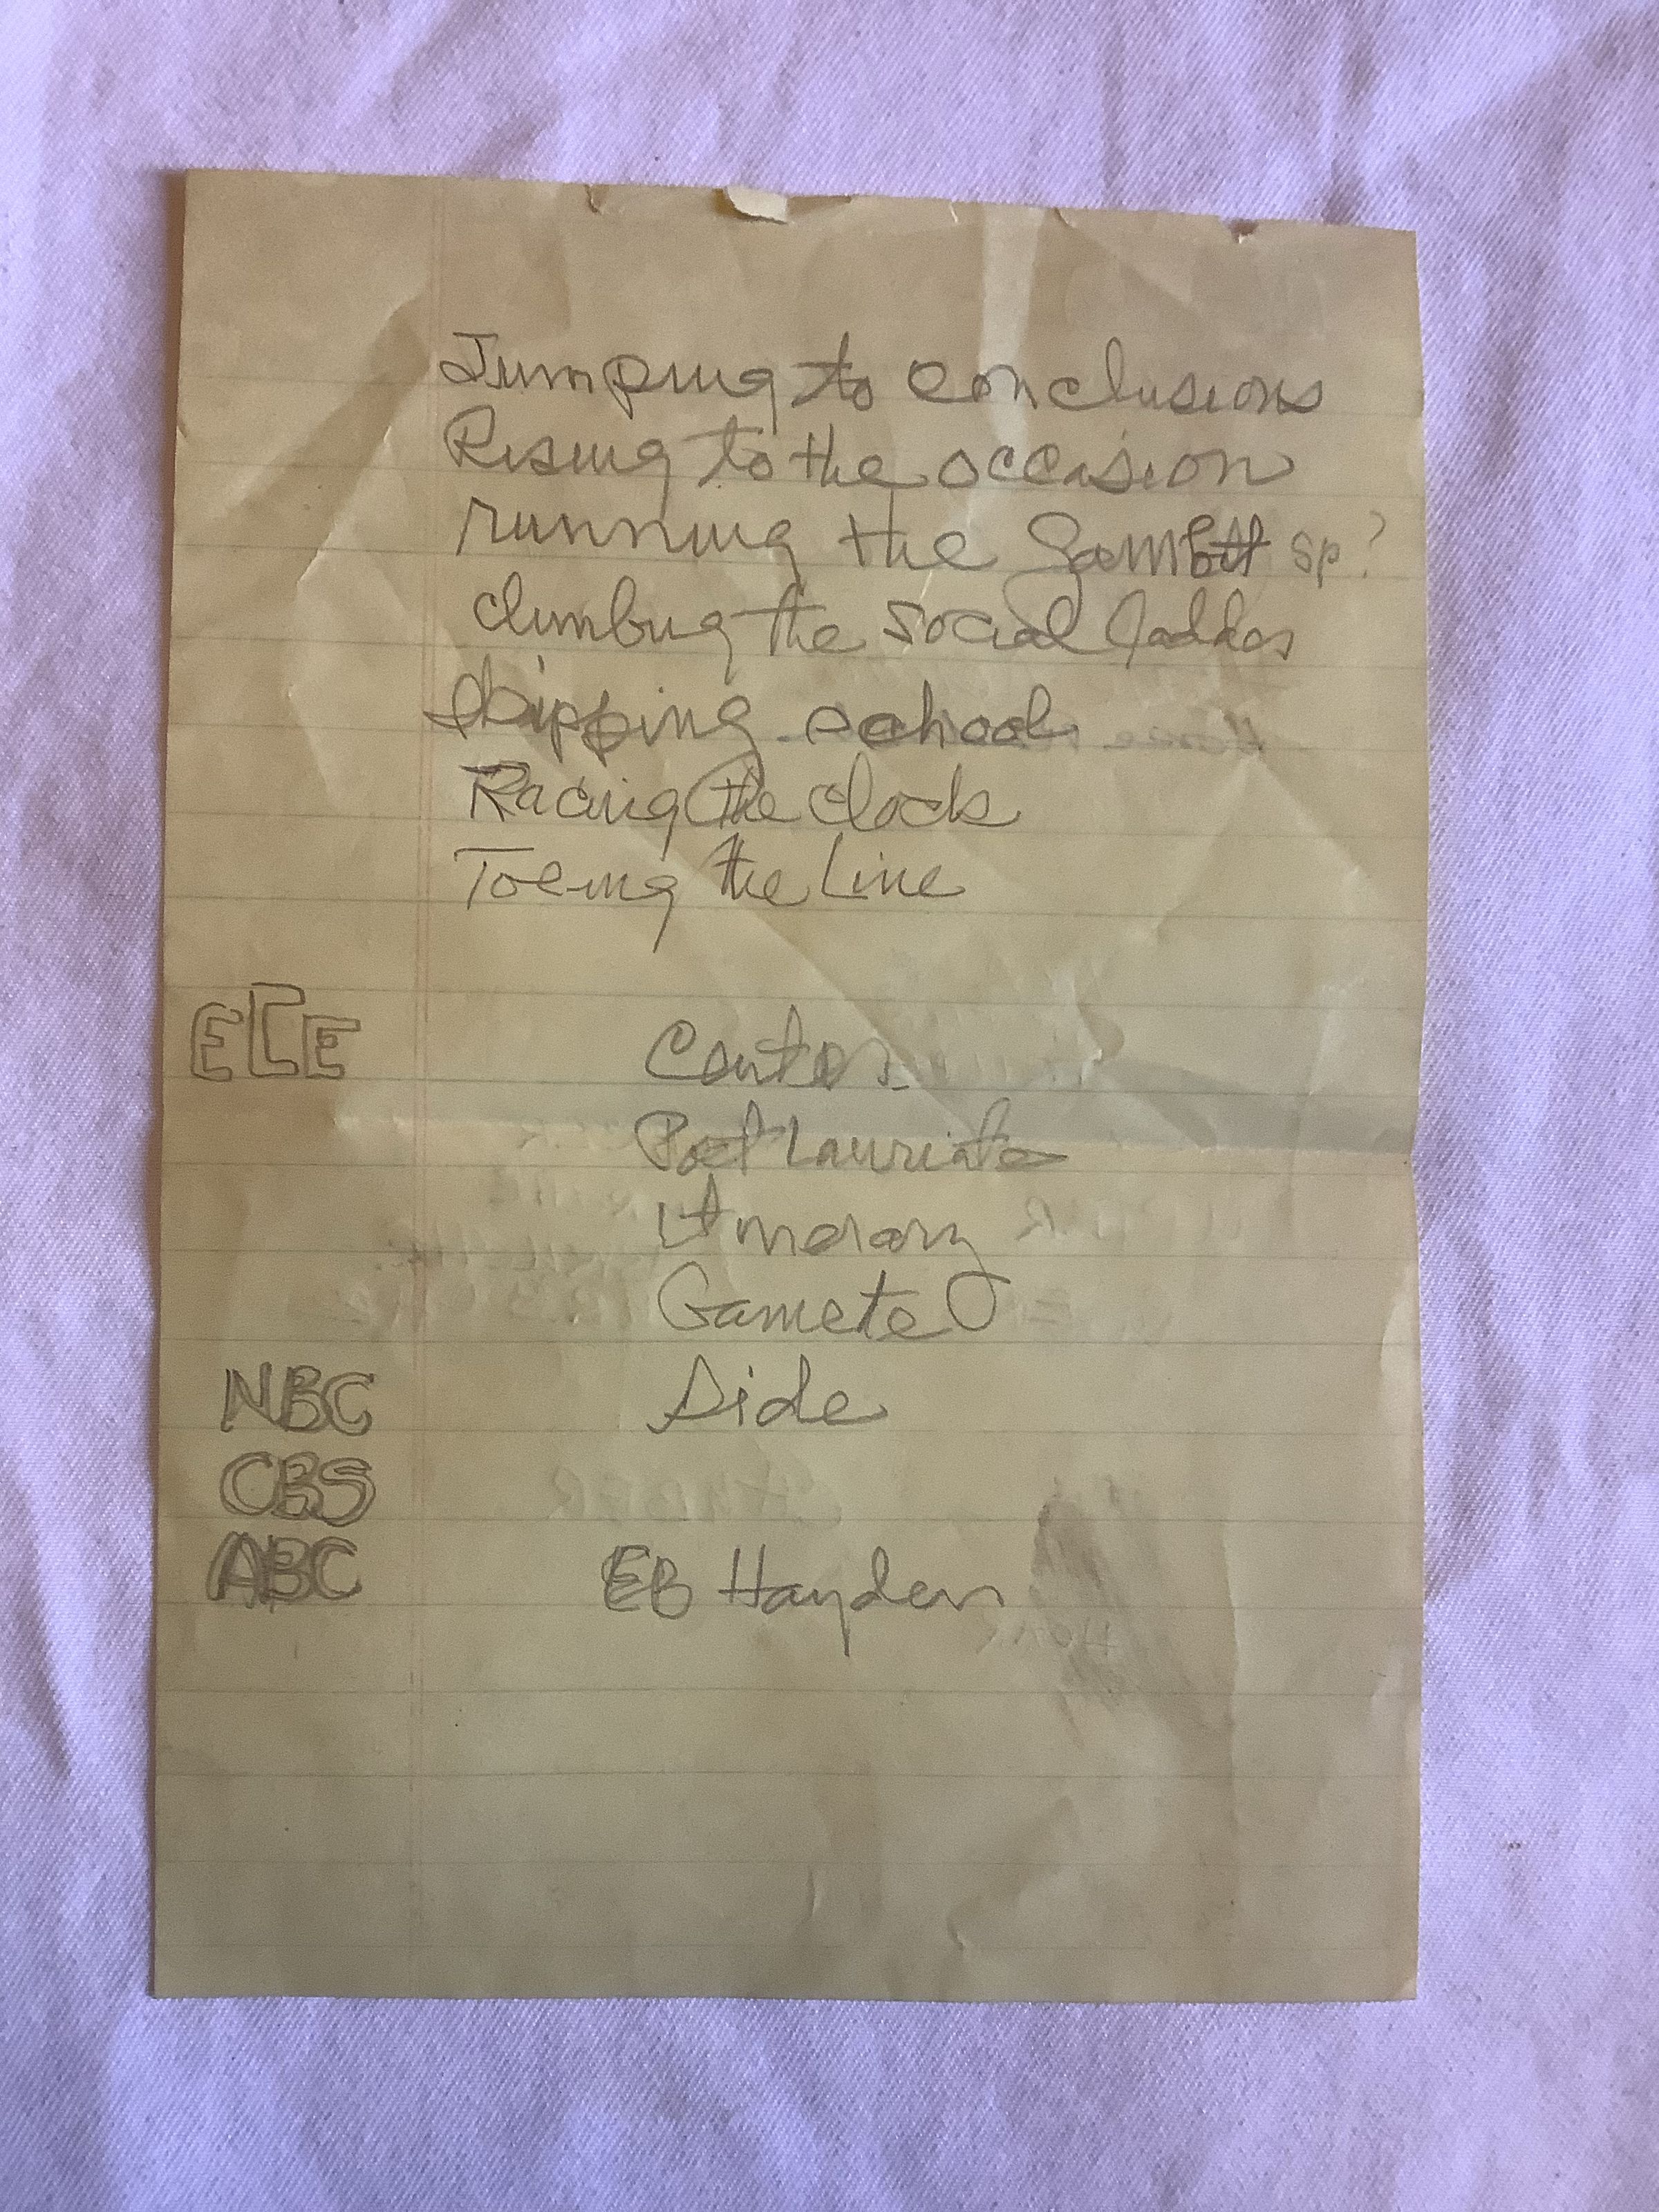 Jumping to conclusions
Rising to the occasion
running the Gambit sp?
climbing the social ladder
skipping school
Racing the clock
Toeing the Line
ECE Cantor
Poet Lauriate
Itinerary
Gamete
NBC Side
CBS
ABC EB Hayden